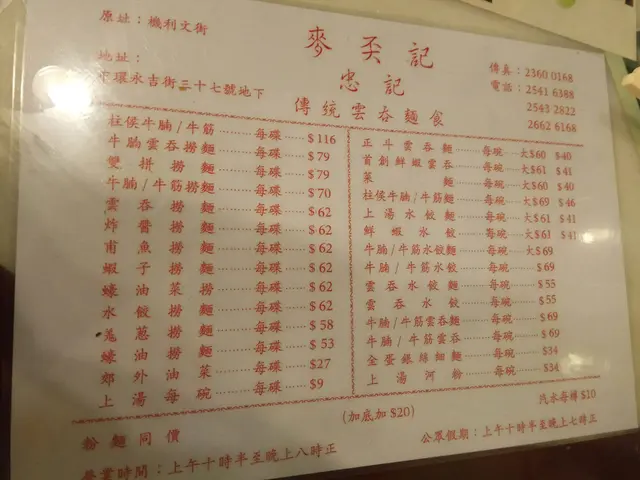 原址：機利文街
麥奀記
忠記
傳統雲吞麵食
地址：
中環永吉街三十七號地下
傳真：2360 0168
電話：2541 6388
2543 2822
2662 6168
柱侯牛腩/牛筋………每碟……$116
牛腩雲吞撈麵………每碟……$79
雙拼撈麵………每碟……$79
牛腩/牛筋撈麵………每碟……$70
雲吞撈麵………每碟……$62
炸醬撈麵………每碟……$62
甫魚撈麵………每碟……$62
蝦子撈麵………每碟……$62
蠔油菜撈………每碟……$62
水餃撈麵………每碟……$62
羗蔥撈麵………每碟……$58
蠔油撈麵………每碟……$53
郊外油菜………每碟……$27
上湯每碗………每碟……$9
正斗雲吞麵………每碗……大$60 $40
首創鮮蝦雲吞………每碗……大$61 $41
菜麵………每碗……大$60 $40
柱侯牛腩/牛筋麵………每碗……大$69 $46
上湯水餃麵………每碗……大$61 $41
鮮蝦水餃………每碗……大$61 $41
牛腩/牛筋水餃麵………每碗……大$69
牛腩/牛筋水餃………每碗……$69
雲吞水餃麵………每碗……$55
雲吞水餃………每碗……$55
牛腩/牛筋雲吞麵………每碗……$69
牛腩/牛筋雲吞………每碗……$69
全蛋銀絲細麵………每碗……$34
上湯河粉………每碗……$34
粉麵同價
(加底加 $20)
汽水每樽$10
營業時間：上午十時半至晚上八時正
公眾假期：上午十時半至晚上七時正